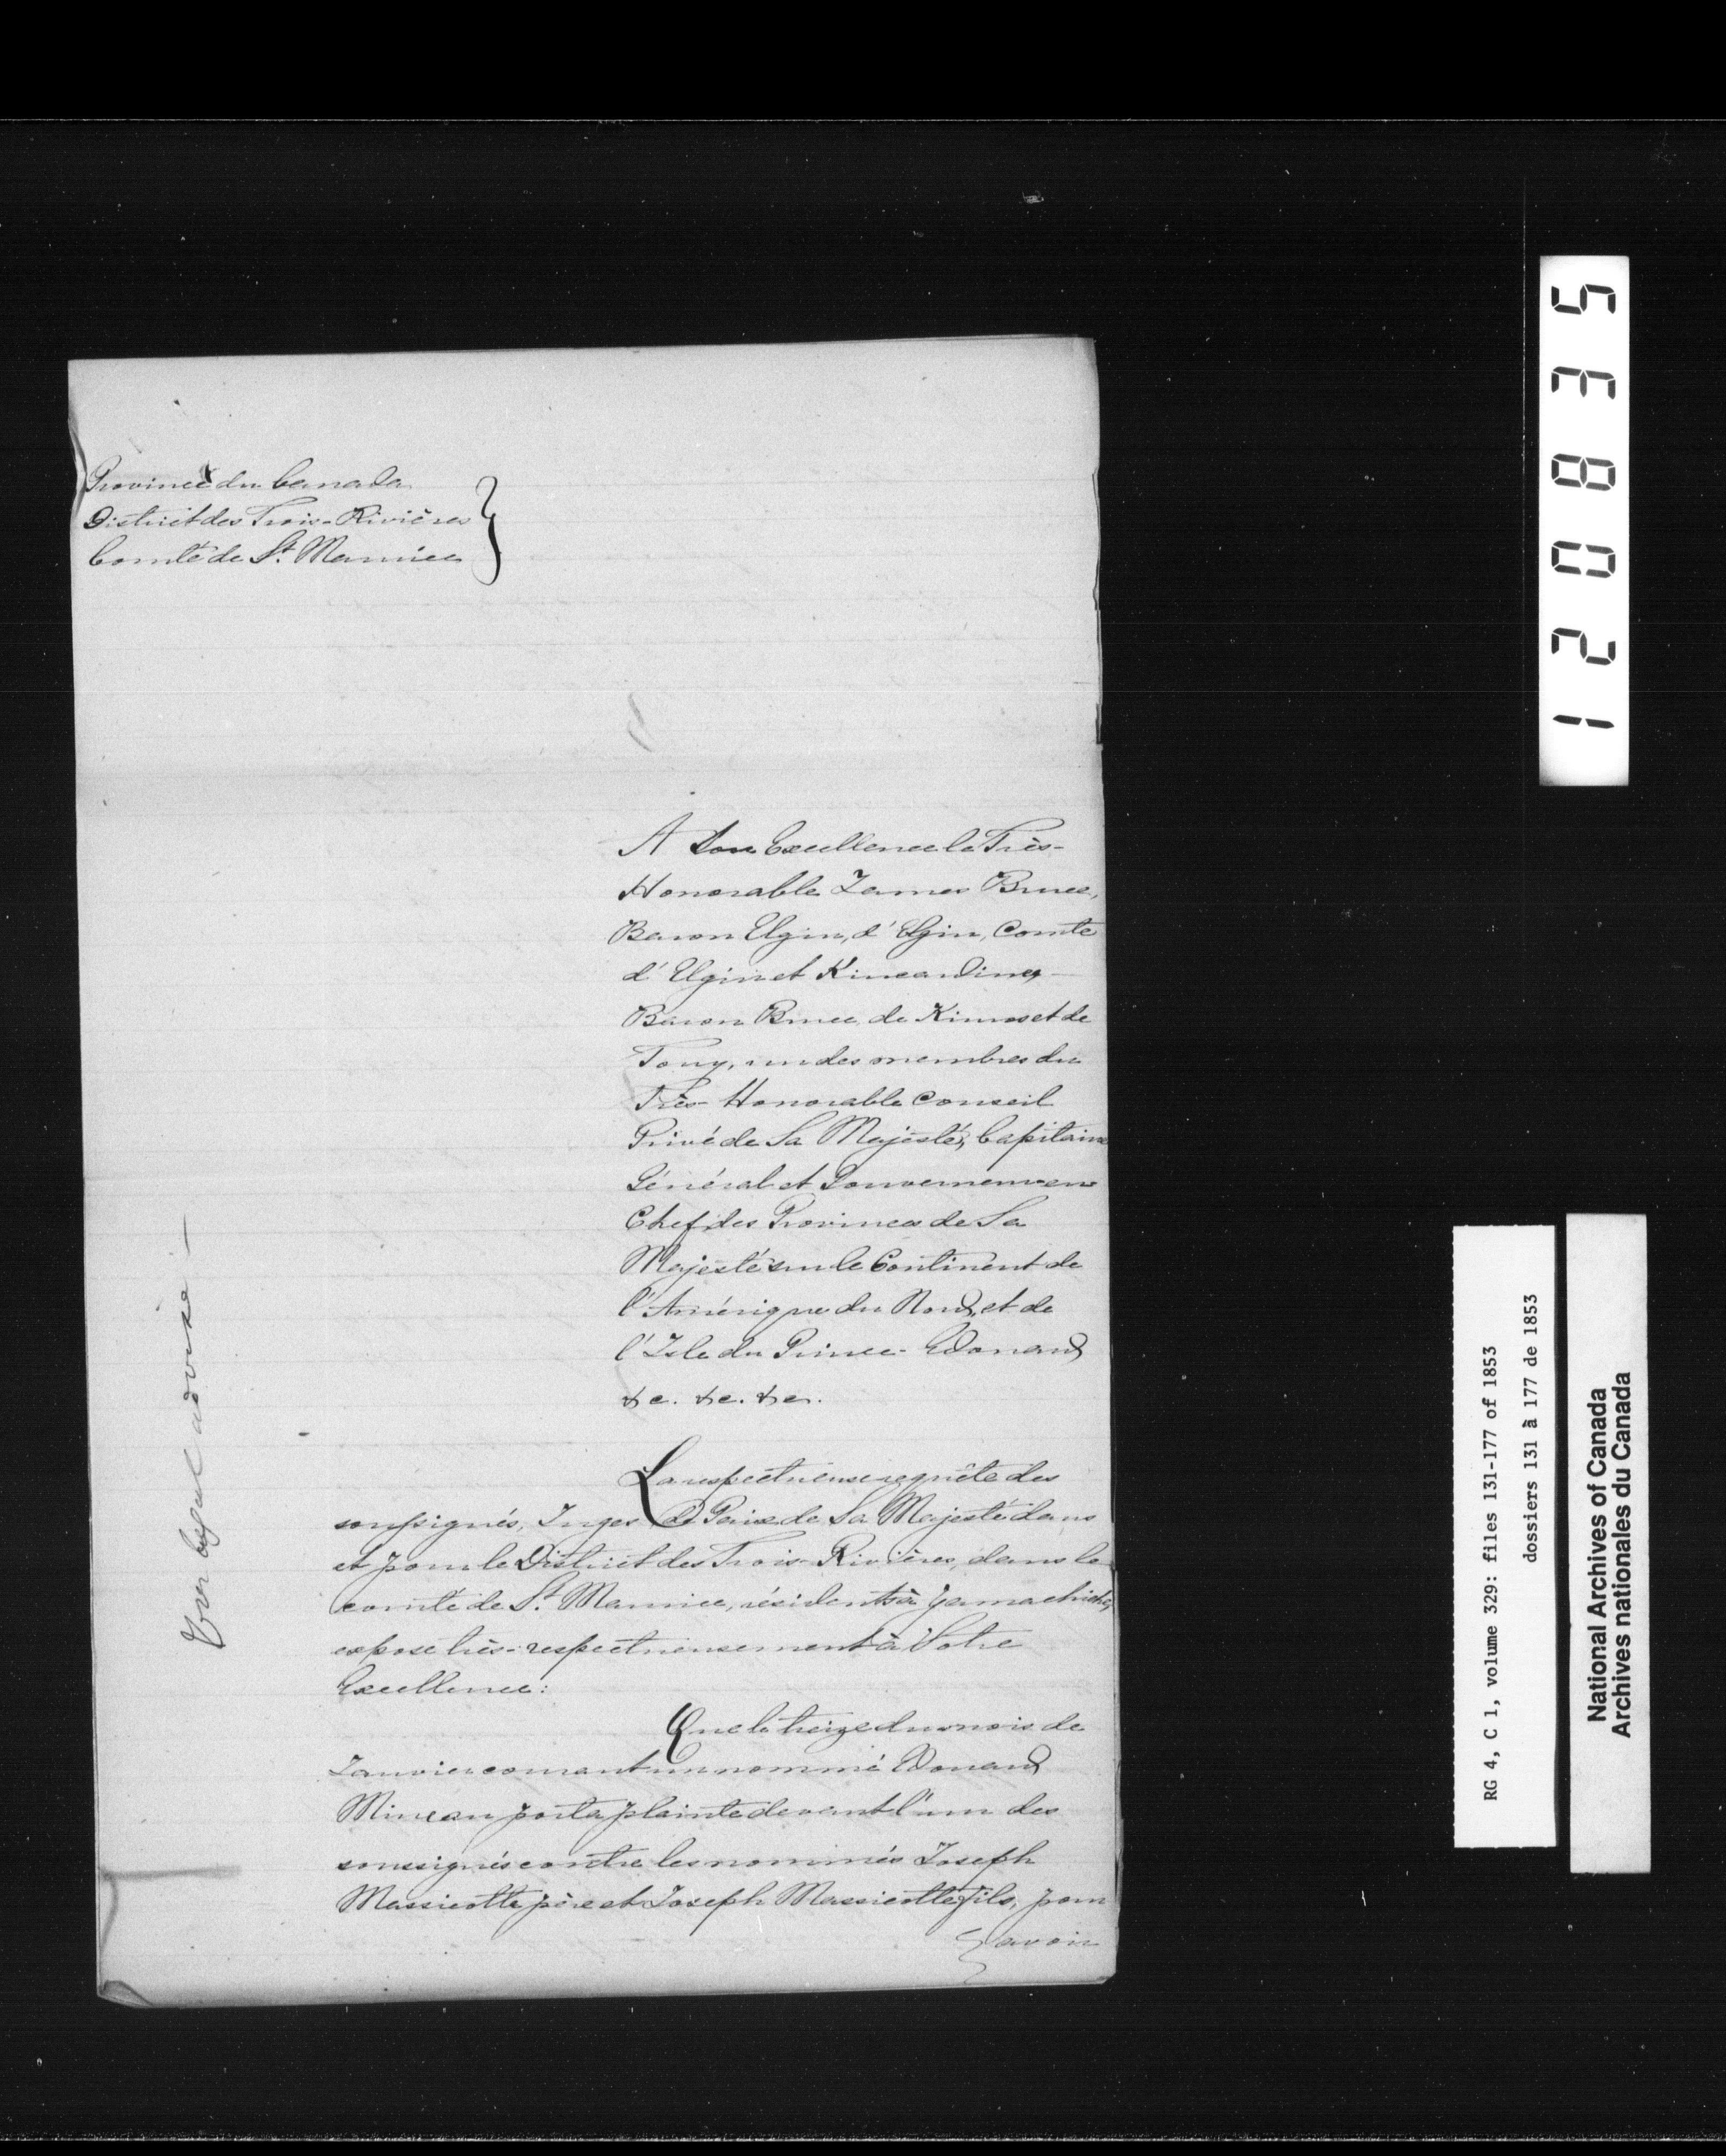 Province du Canada
District des Trois-Rivières
Comté de St. Maurice
A Son Excellence le Très-
Honorable James Bruce,
Baron Elgin, d'Elgin, Comte
d'Elgin et Kincardine,
Baron Bruce, de Kinross et de
Tory, un des membres du
Très-Honorable Conseil
Privé de Sa Majesté, Capitaine
Général et Gouverneur en
Chef des Provinces de Sa
Majesté sur le Continent de
l'Amérique du Nord, et de
l'Isle du Prince-Edouard
&c. &c. &c.
La respectueuse requête des
soussignés, Juges de Paix de Sa Majesté dans
et pour le District des Trois-Rivières, dans le
comté de St. Maurice, résidents à Yamachiche,
expose très-respectueusement à Votre
Excellence:
Que le treize du mois de
Janvier courant un nommé Edouard
Mineau porta plainte devant l'un des
soussignés contre les nommés Joseph
Massicotte père et Joseph Massicotte fils, pour
avoir
120835
RG 4, C 1, volume 329: files 131-177 of 1853
dossiers 131 à 177 de 1853
National Archives of Canada
Archives nationales du Canada